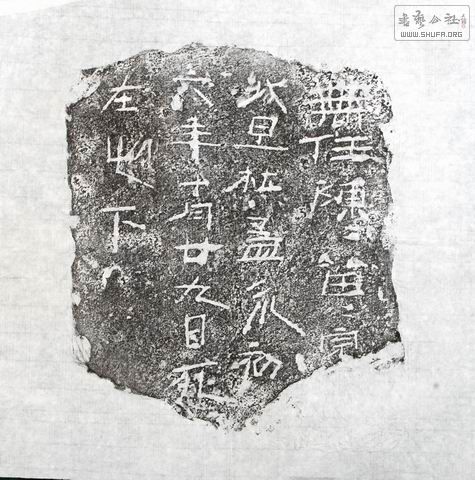 無任陳留完
城旦杜孟永初
六年月廿九日死
在此下
書藝公社
WWW.SHUFA.ORG